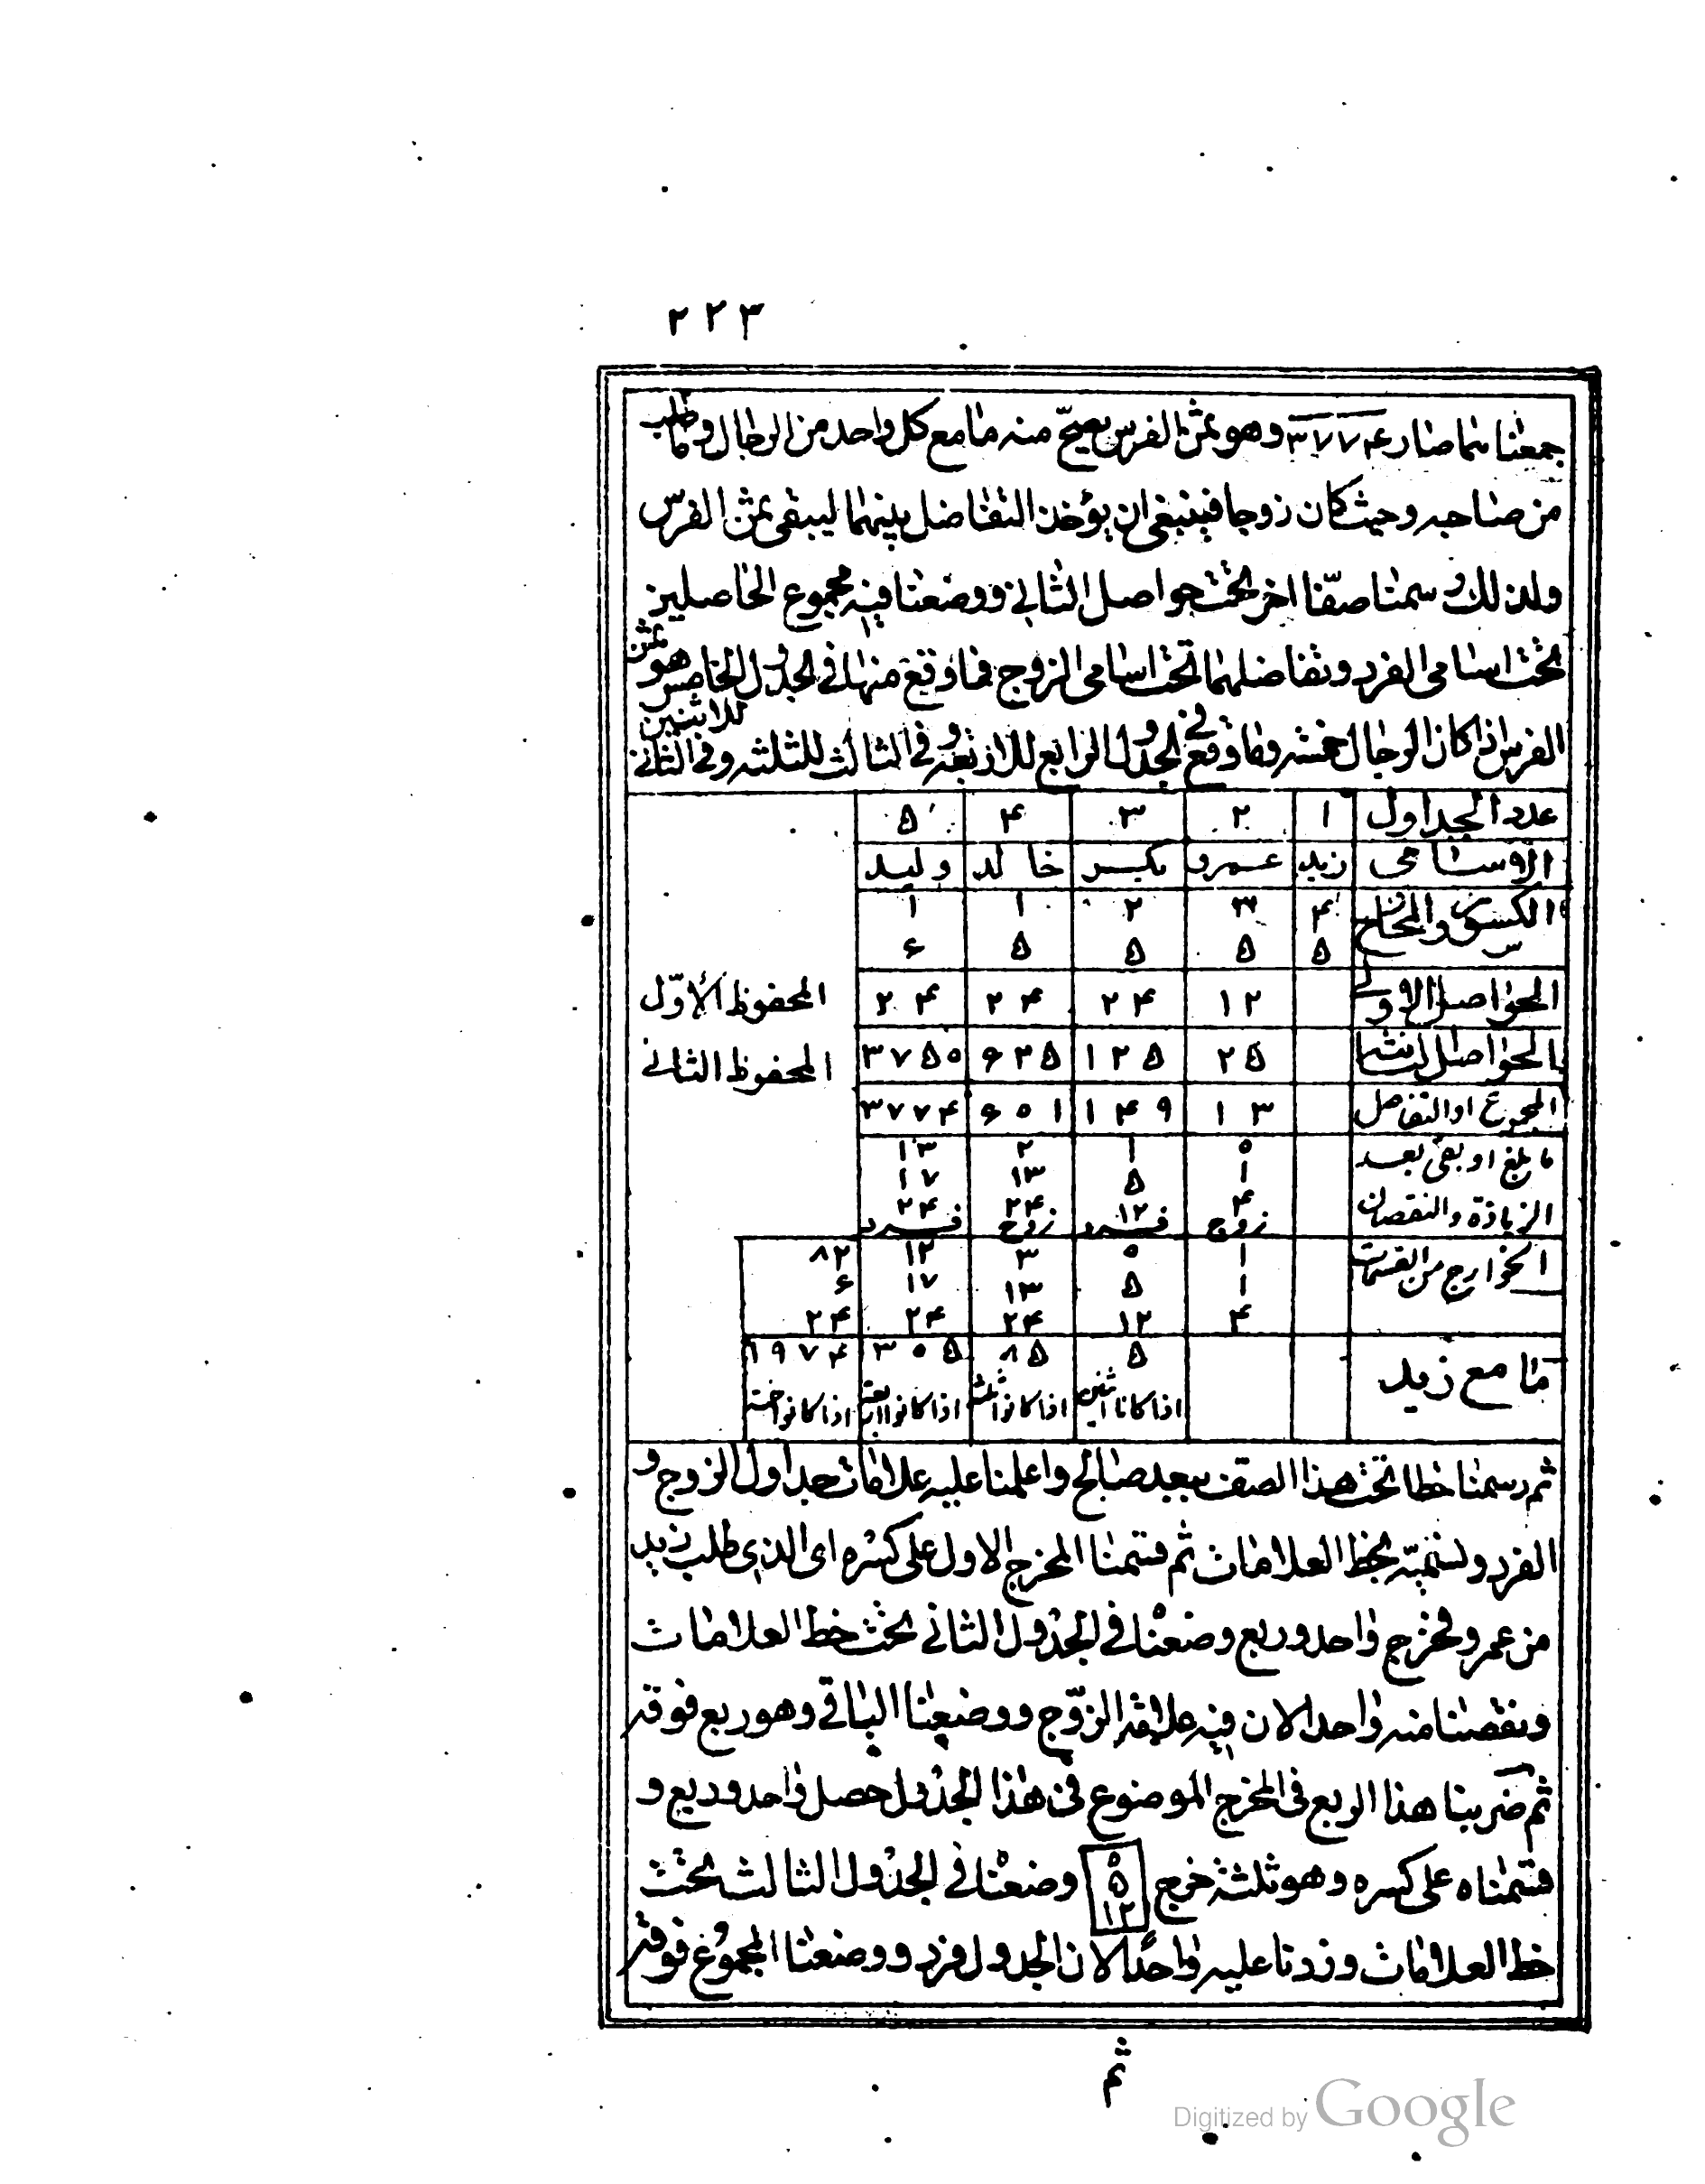 ٢٢٣
جمعناهما صار ٣٧٧۴ وهو ثمن الفرس يصحّ منه ما مع كل واحد من الرجال وما طلب
من صاحبه وحيث كان زوجا فينبغي ان يؤخذ التفاضل بينهما ليبقى ثمن الفرس
ولذلك رسمنا صفّا اخر تحت حواصل الثاني ووضعنا فيه مجموع الحاصلين
تحت اسامى الفرد وتفاضلهما تحت اسامى الزوج فما وقع منها في الجدول الخامس هو ثمن
الفرس اذا كان الرجال خمسة وما وقع في الجدول الرابع للاربعة وفي الثالث للثلثة وفي الثاني للاثنين
عدد الجداول ١ ٢ ٣ ۴ ۵
الاسامى زيد عمرو بكر خالد وليد
الكسور والمخارج ۴ ٣ ٢ ١ ١
۵ ۵ ۵ ۵ ۶
الحواصل الاولى ١٢ ٢۴ ٢۴ ٢۴ المحفوظ الأوّل
الحواصل الثانية ٢۵ ١٢۵ ۶٢۵ ٣٧۵٠ المحفوظ الثاني
المجموع او التفاضل ١٣ ١۴٩ ۶٠١ ٣٧٧۴
ما بلغ او بقى بعد ٠ ١ ٢ ١٣
١ ۵ ١٣ ١٧
الزيادة والنقصان ۴ ١٢ ٢۴ ٢۴
زوج فرد زوج فرد
الخوارج من القسمات ١ ٠ ٣ ١٢ ٨٢
١ ۵ ١٣ ١٧ ۶
۴ ١٢ ٢۴ ٢۴ ٢۴
ما مع زيد ۵ ٨۵ ٣٠۵ ١٩٧۴
اذا كانا اثنين اذا كانوا ثلثة اذا كانوا اربعة اذا كانوا خمسة
ثم رسمنا خطا تحت هذا الصف ببعد صالح واعلمنا عليه علامات جداول الزوج و
الفرد ولنسمّه بخط العلامات ثم قسمنا المخرج الاول على كسره اى الذى طلب زيد
من عمرو فخرج واحد وربع وضعنا في الجدول الثاني تحت خط العلامات
ونقصنا منه واحدا لان فيه علامة الزّوج ووضعنا الباقي وهو ربع فوقه
ثم ضربنا هذا الربع في المخرج الموضوع في هذا الجدول حصل واحد وربع و
قسمناه على كسره وهو ثلثة خرج ٠ ۵ ١٢ وضعنا في الجدول الثالث تحت
خط العلامات وزدنا عليه واحدًا لان الجدول فرد ووضعنا المجموع فوقه
ثم
Digitized by Google